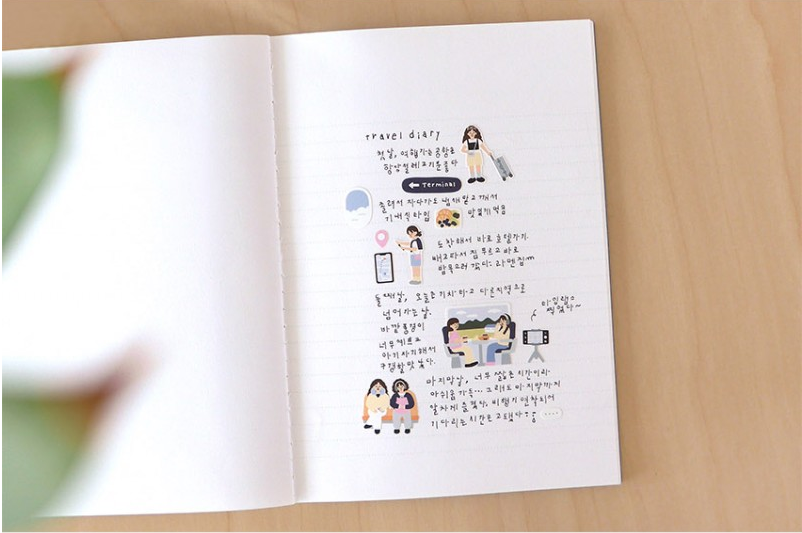 travel diary
첫날, 여행가는 공항은
항상 설레고 기분 좋다
← Terminal
졸려서 자다가도 냄새 맡고 깨서
기내식 타임 맛있게 먹음
도착해서 바로 호텔가기.
배고파서 짐 푸르고 바로
밥 먹으러 라멘집
둘째날, 오늘은 기차 타고 다른지역으로
넘어가는 날.
바깥 풍경이
너무 예쁘고
아기자기해서
구경할 맛 났다.
마지막날, 너무 짧은 시간이라
아쉬움 가득... 그래도 마지막까지
알차게 즐겼다. 비행기 연착되서
기다리는 시간은 고됐다